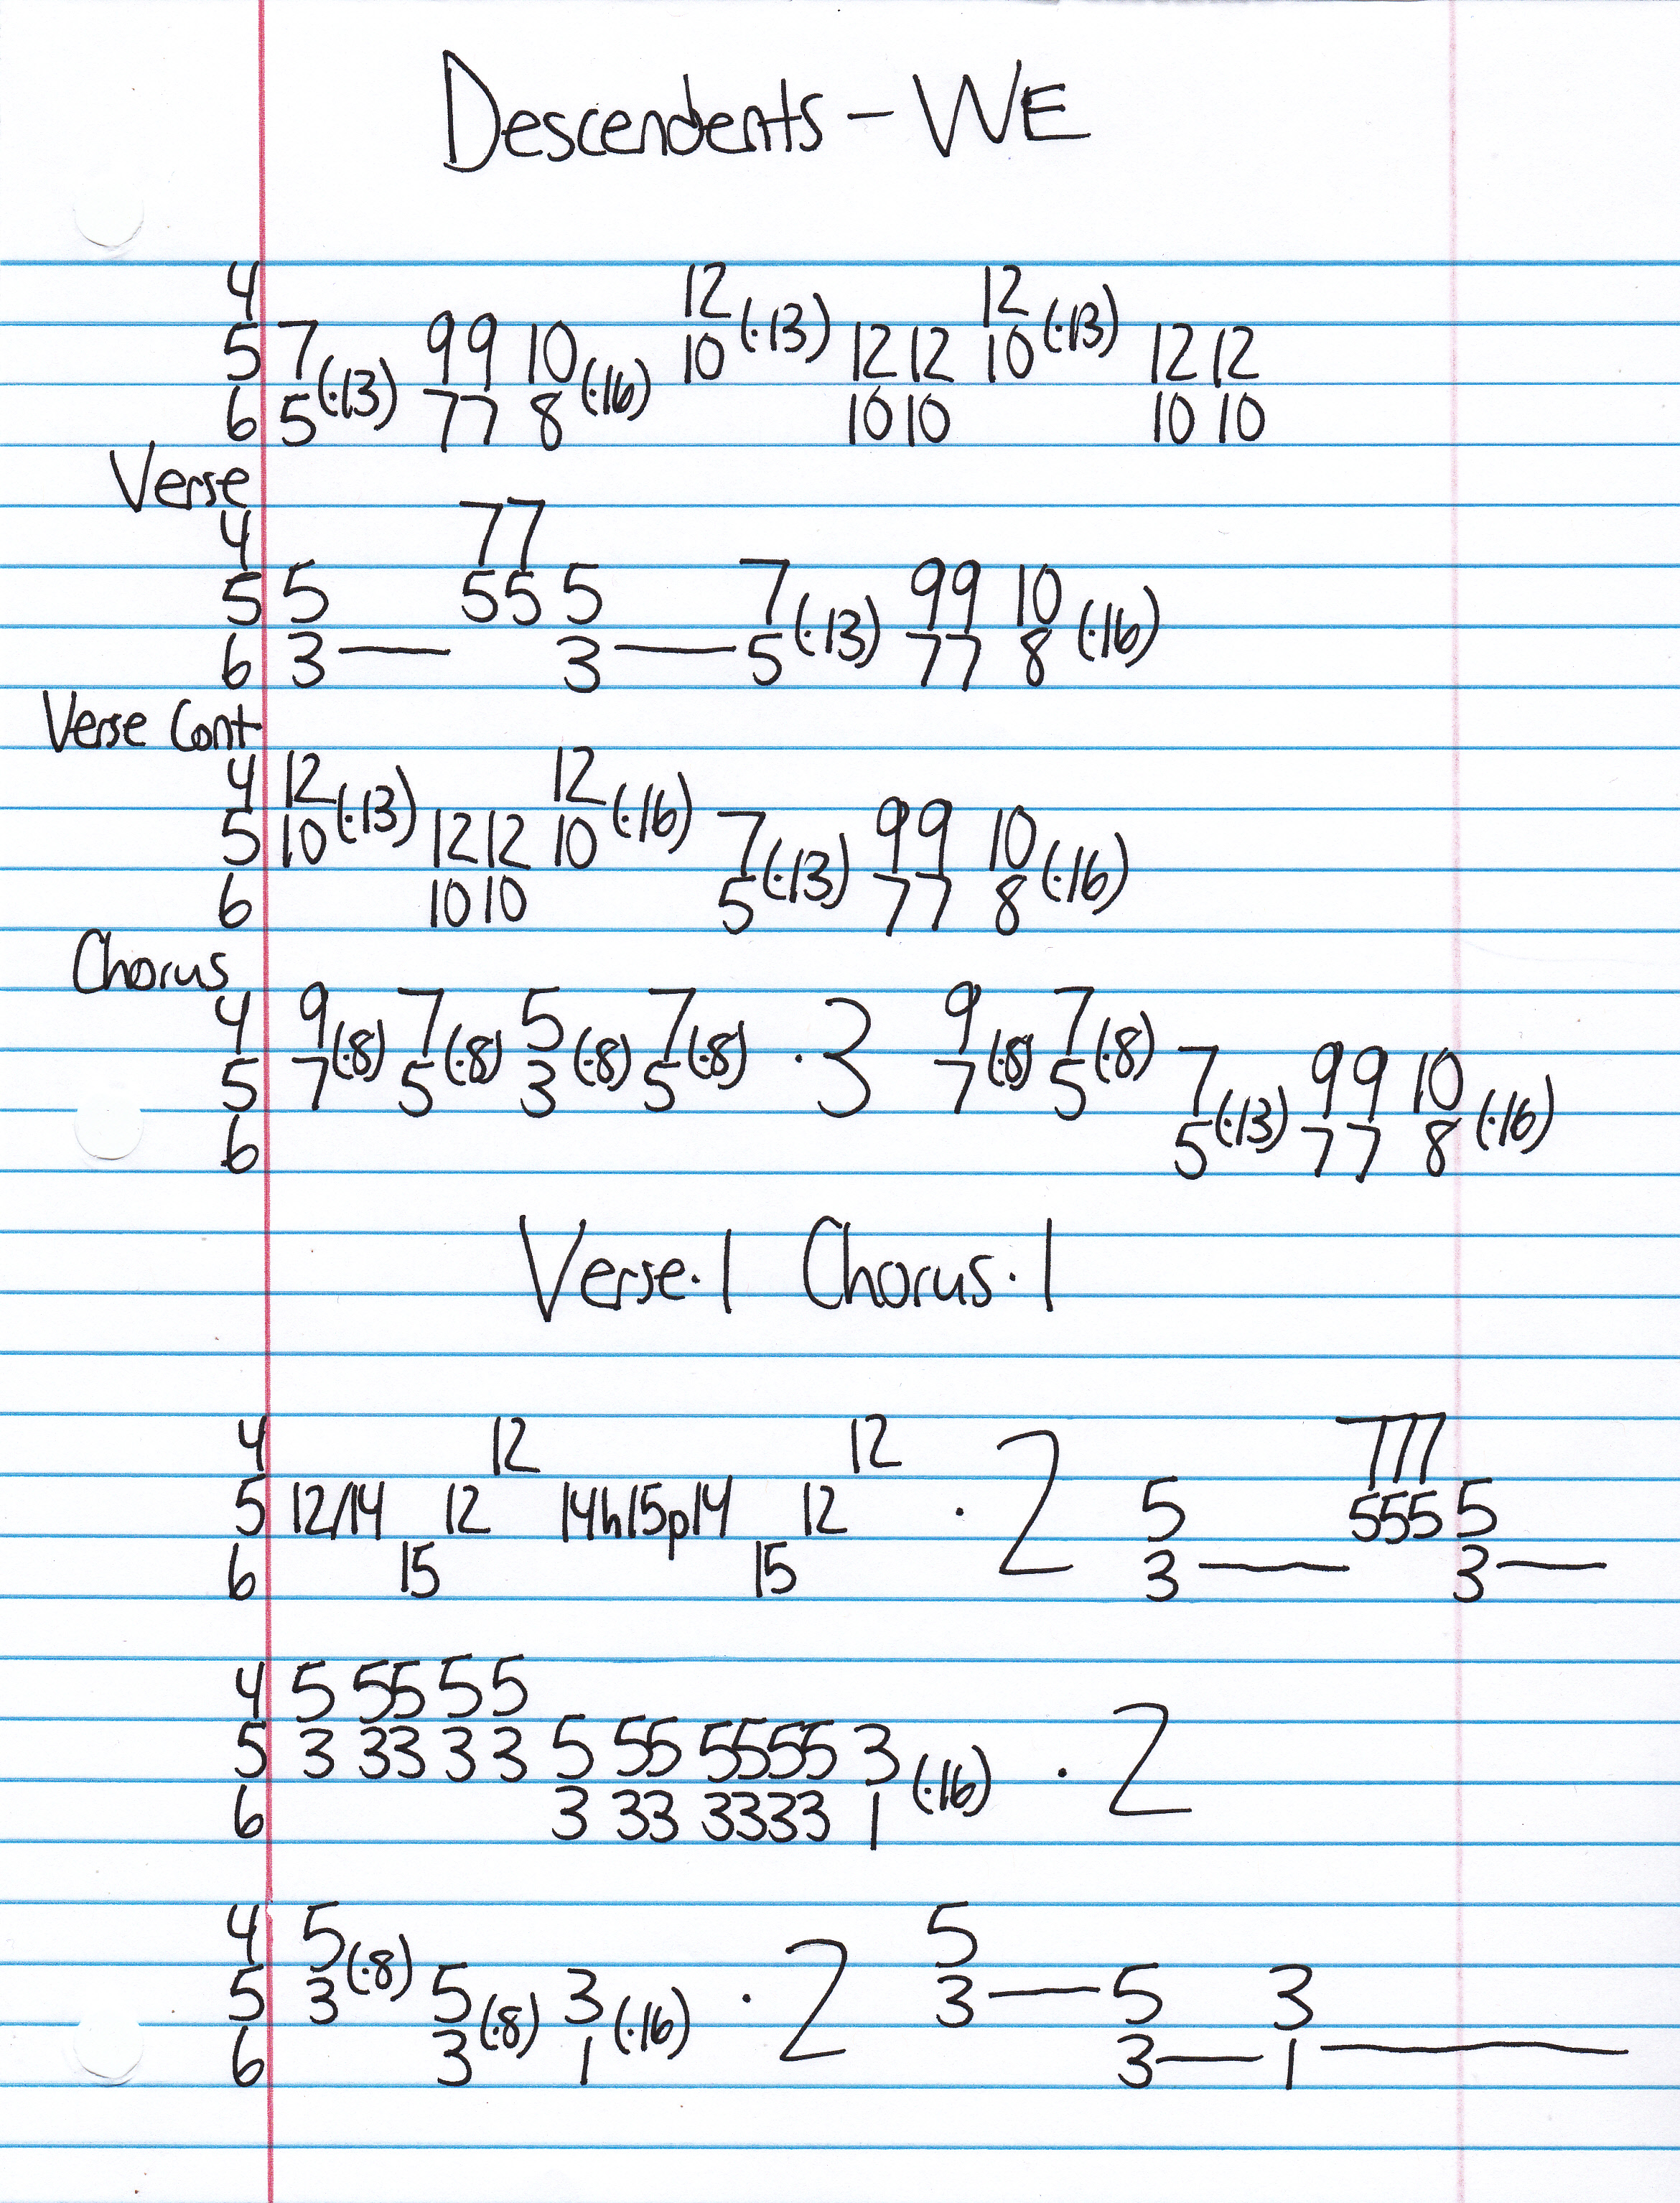 Descendents - WE
4 12 12
5 7 99 10 10 (·13) 12 12 10 (·13) 12 12
6 5 (·13) 77 8 (·16) 10 10 10 10
Verse
4 77
5 5 55 5 7 99 10
6 3 — 3 — 5 (·13) 77 8 (·16)
Verse Cont
4 12 12
5 10 (·13) 12 12 10 (·16) 7 99 10
6 10 10 5 (·13) 77 8 (·16)
Chorus
4 9 7 5 7 · 3 9 7
5 7 (·8) 5 (·8) 3 (·8) 5 (·8) 7 (·8) 5 (·8) 7 99 10
6 5 (·13) 77 8 (·16)
Verse·1 Chorus·1
4 12 12 · 2 777
5 12/14 12 14h15p14 12 5 555 5
6 15 15 3 — 3 —
4 5 55 5 5
5 3 33 3 3 5 55 5555 3 · 2
6 3 33 3333 1 (·16)
4 5 5
5 3 (·8) 5 3 · 2 3 — 5 3
6 3 (·8) 1 (·16) 3 — 1 —